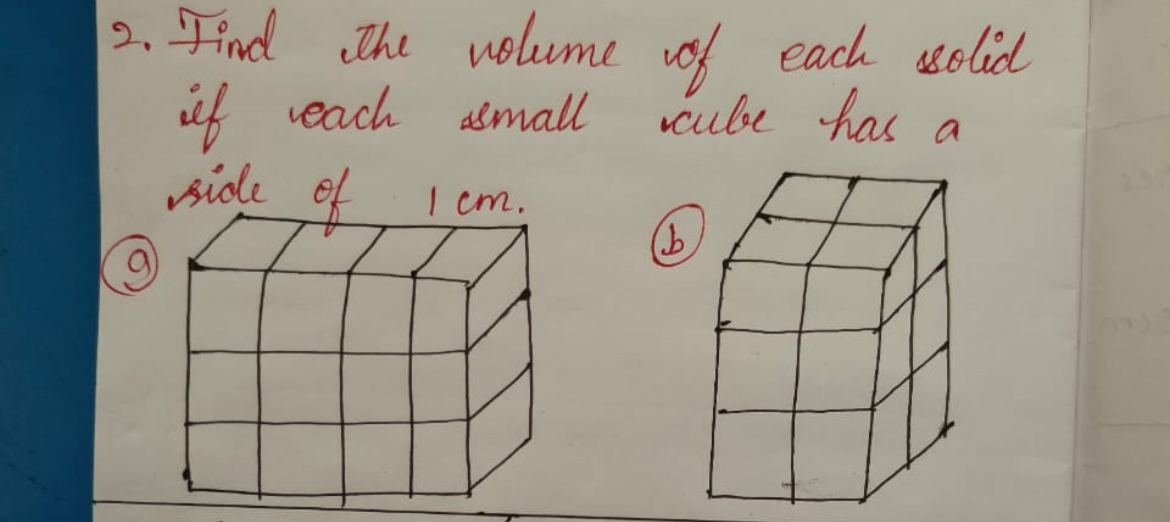 2. Find the volume of each solid
if each small cube has a
side of 1 cm.
g
b